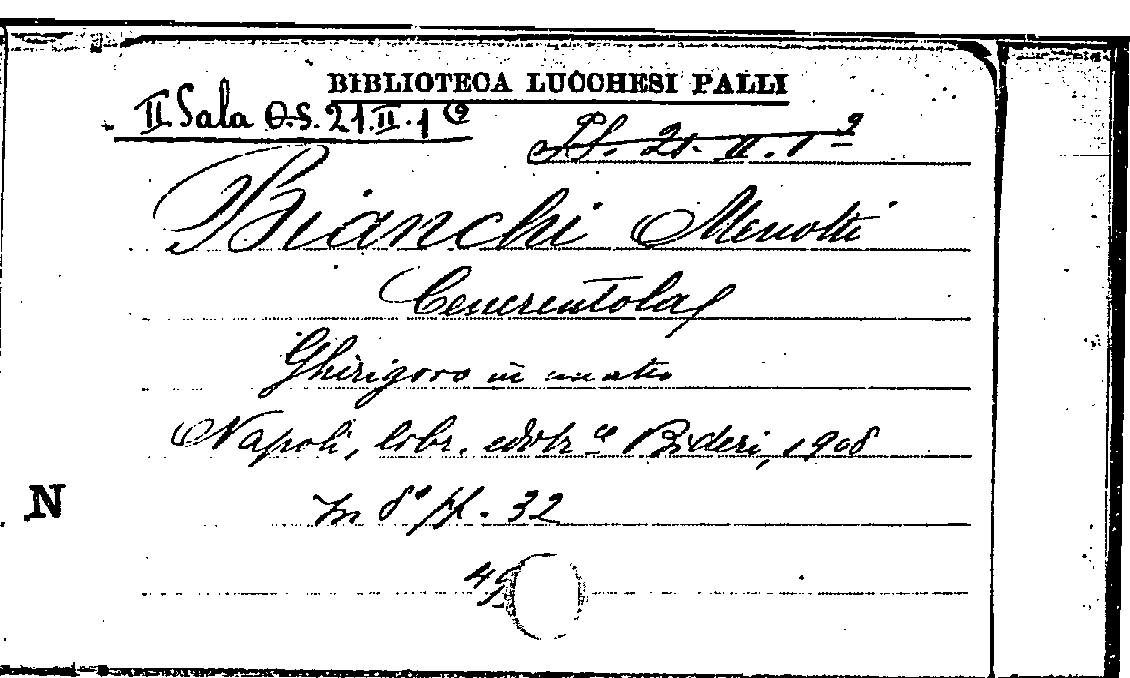 BIBLIOTECA LUCCHESI PALLI
II Sala O.S. 21.II.1 (9
21. II. 1 9
Bianchi Menotti
Cenerentola
Ghirigoro in un atto
Napoli, libr. editr.ce Bideri, 1908
In 8° pp. 32
N